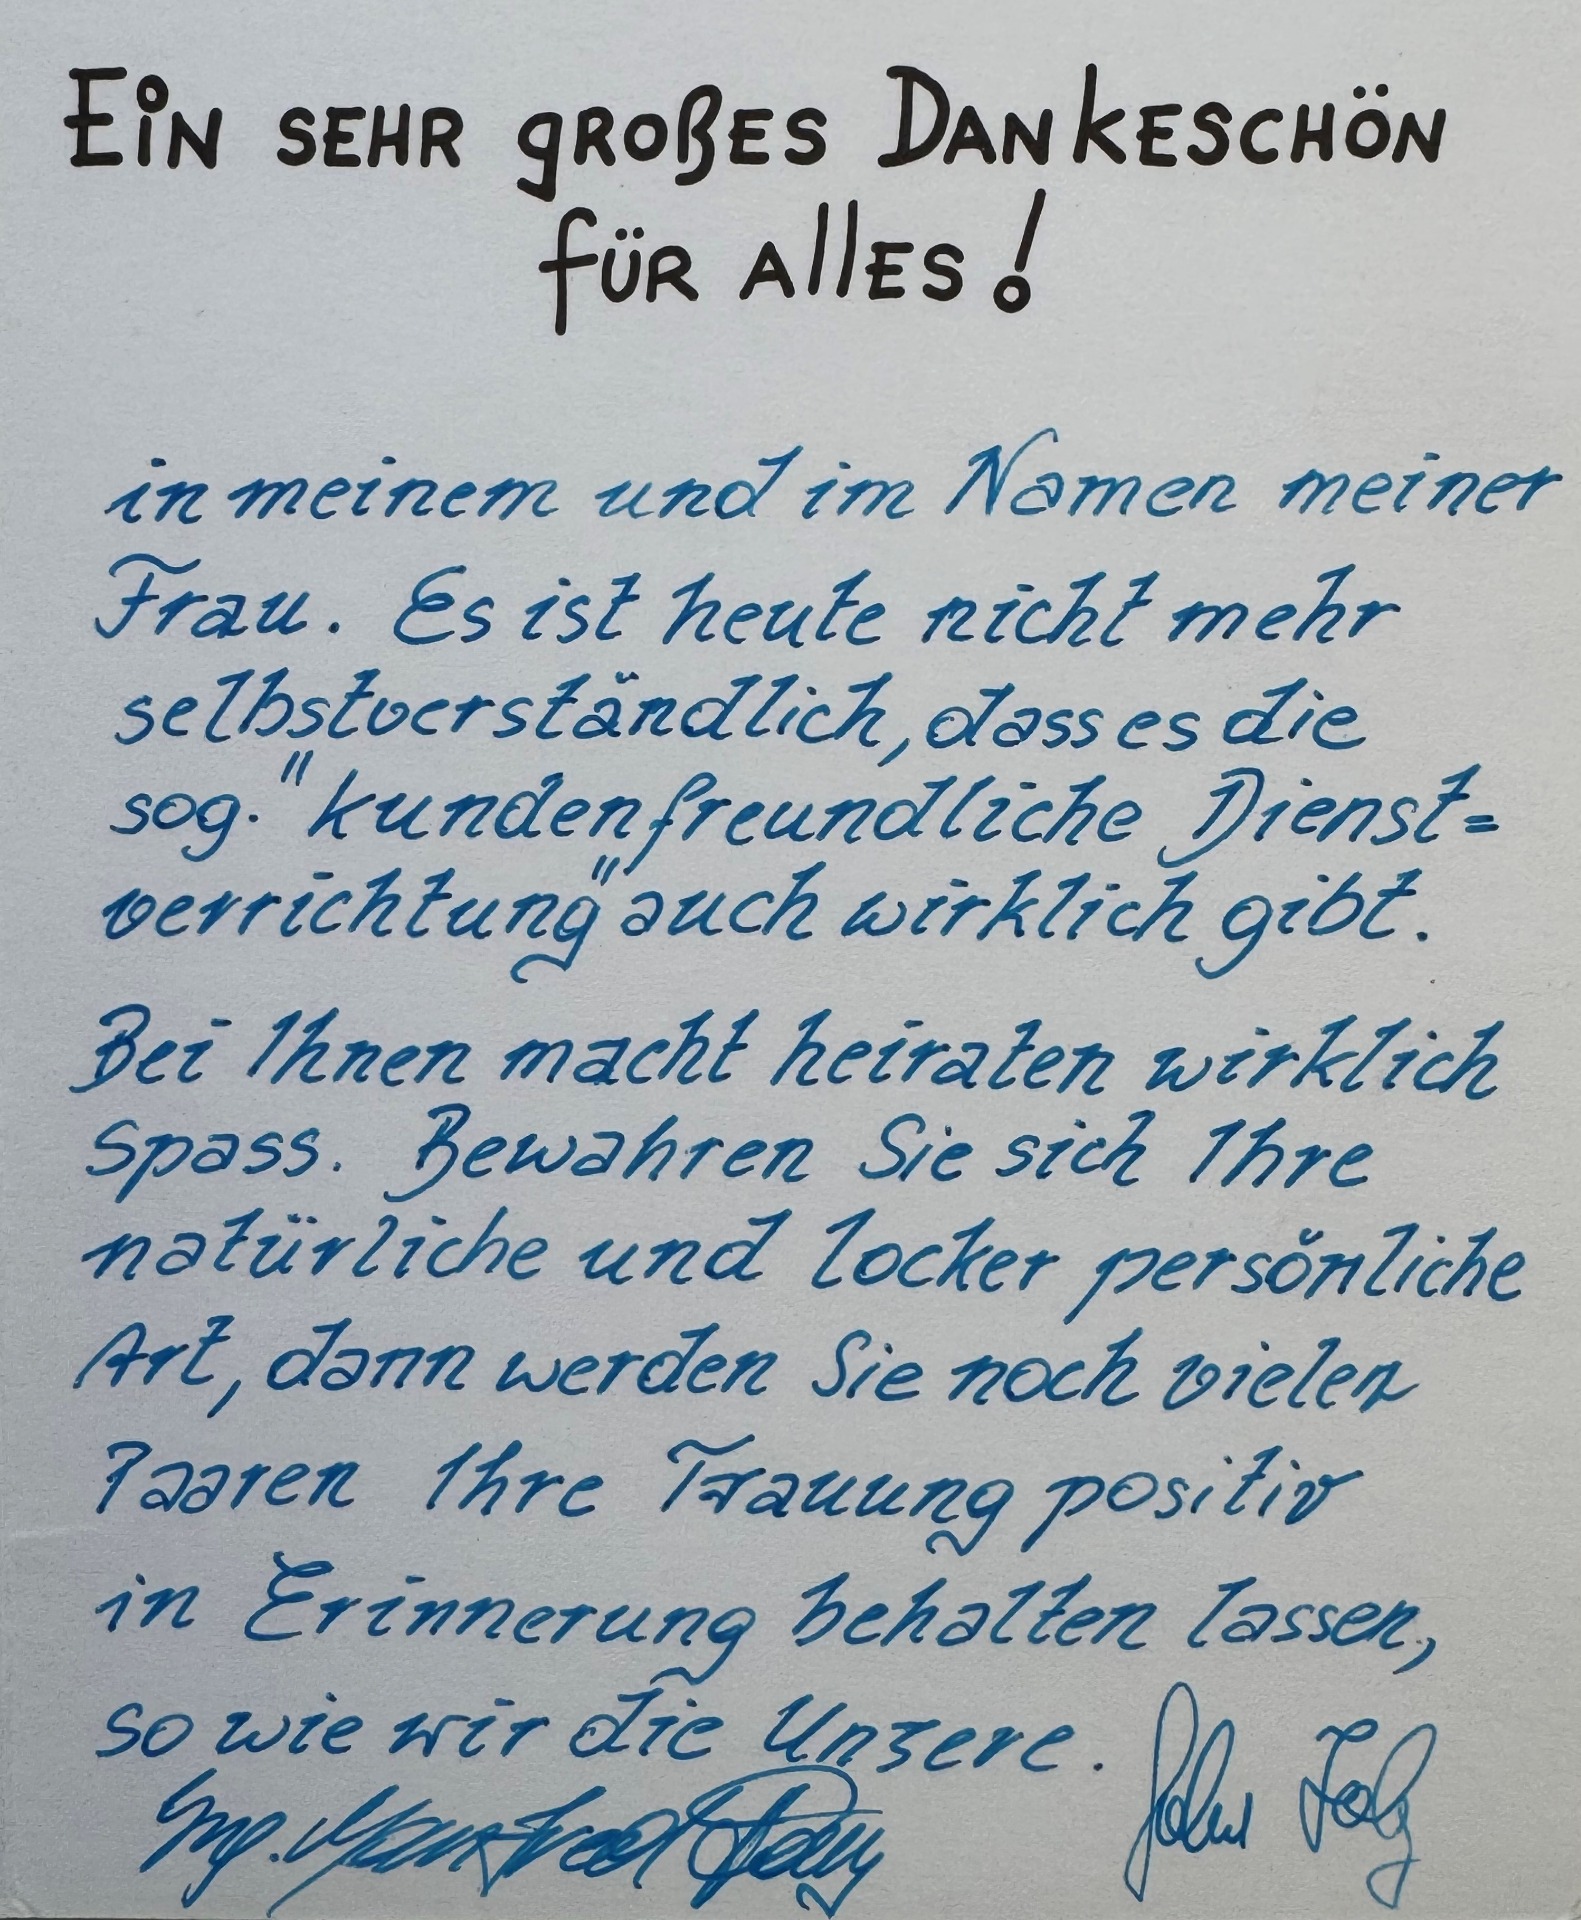 Ein sehr großes Dankeschön
für alles!
in meinem und im Namen meiner
Frau. Es ist heute nicht mehr
selbstverständlich, dass es die
sog. "kundenfreundliche Dienst=
verrichtung" auch wirklich gibt.
Bei Ihnen macht heiraten wirklich
Spass. Bewahren Sie sich Ihre
natürliche und locker persönliche
Art, dann werden Sie noch vielen
Paaren Ihre Trauung positiv
in Erinnerung behalten lassen,
so wie wir die Unsere.
Ing. Manfred